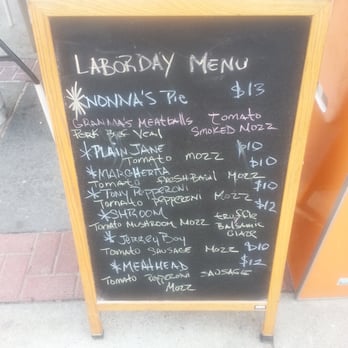 LABORDAY MENU
*NONNA'S Pie $13
GRANMA'S Meatballs Tomato
Pork Beef Veal SMOKED MOZZ
*PLAIN JANE $10
Tomato MOZZ $10
*MARGHERITA
Tomato FRESH Basil MOZZ
*TONY PEPPERONI $10
Tomato PEPPERONI MOZZ $12
*SHROOM truffle
Tomato MUSHROOM MOZZ BALSAMIC
Glaze
*JERSEY BOY
Tomato SAUSAGE MOZZ $10
*MEATHEAD $12
Tomato PEPPERONI SAUSAGE
MOZZ